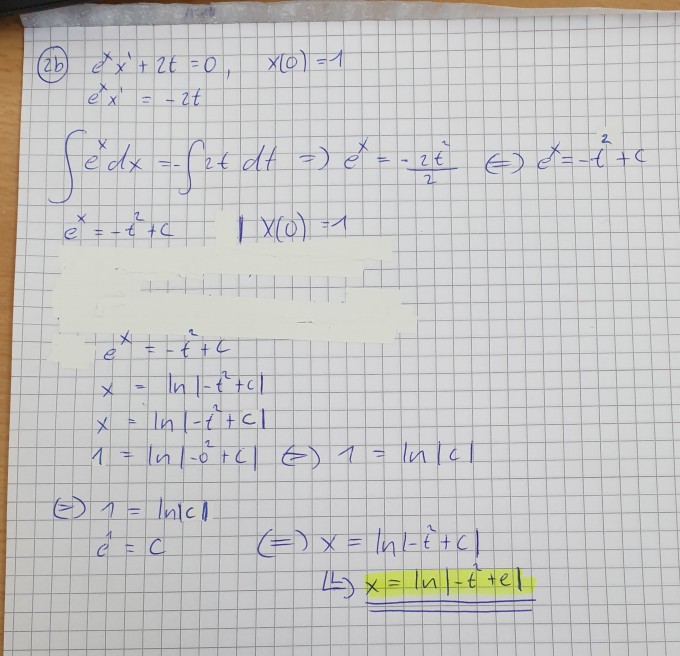 2b) eˣx' + 2t = 0, x(0) = 1
eˣx' = -2t
∫eˣdx = -∫2t dt => eˣ = -2t²/2 <=> eˣ = -t² + c
eˣ = -t² + c | X(0) = 1
eˣ = -t² + c
x = ln|-t² + c|
x = ln|-t² + c|
1 = ln|-0² + c| <=> 1 = ln|c|
<=> 1 = ln|c|
e¹ = c <=> x = ln|-t² + c|
↳ x = ln|-t² + e|